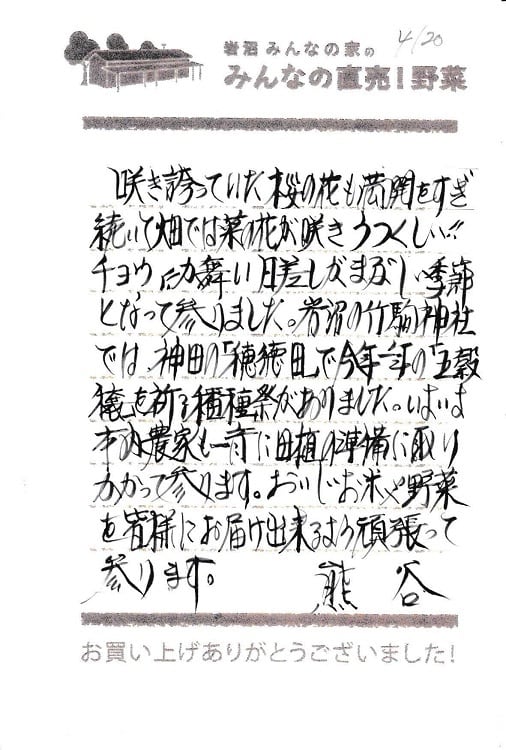 4/20
岩沼みんなの家の
みんなの直売!野菜
咲き誇っていた桜の花も満開をすぎ
続いて畑では菜の花が咲きうつくしい!!
チョウが舞い日差しがまぶしい季節
となって参りました。岩沼の竹駒神社
では、神田の「穂徳田」で今年一年の「五穀
穣」を祈る播種祭がありました。いよいよ
市内農家も一斉に田植の準備に取り
かかって参ります。おいしいお米や野菜
を皆様にお届け出来るよう頑張って
参ります。 熊谷
お買い上げありがとうございました!